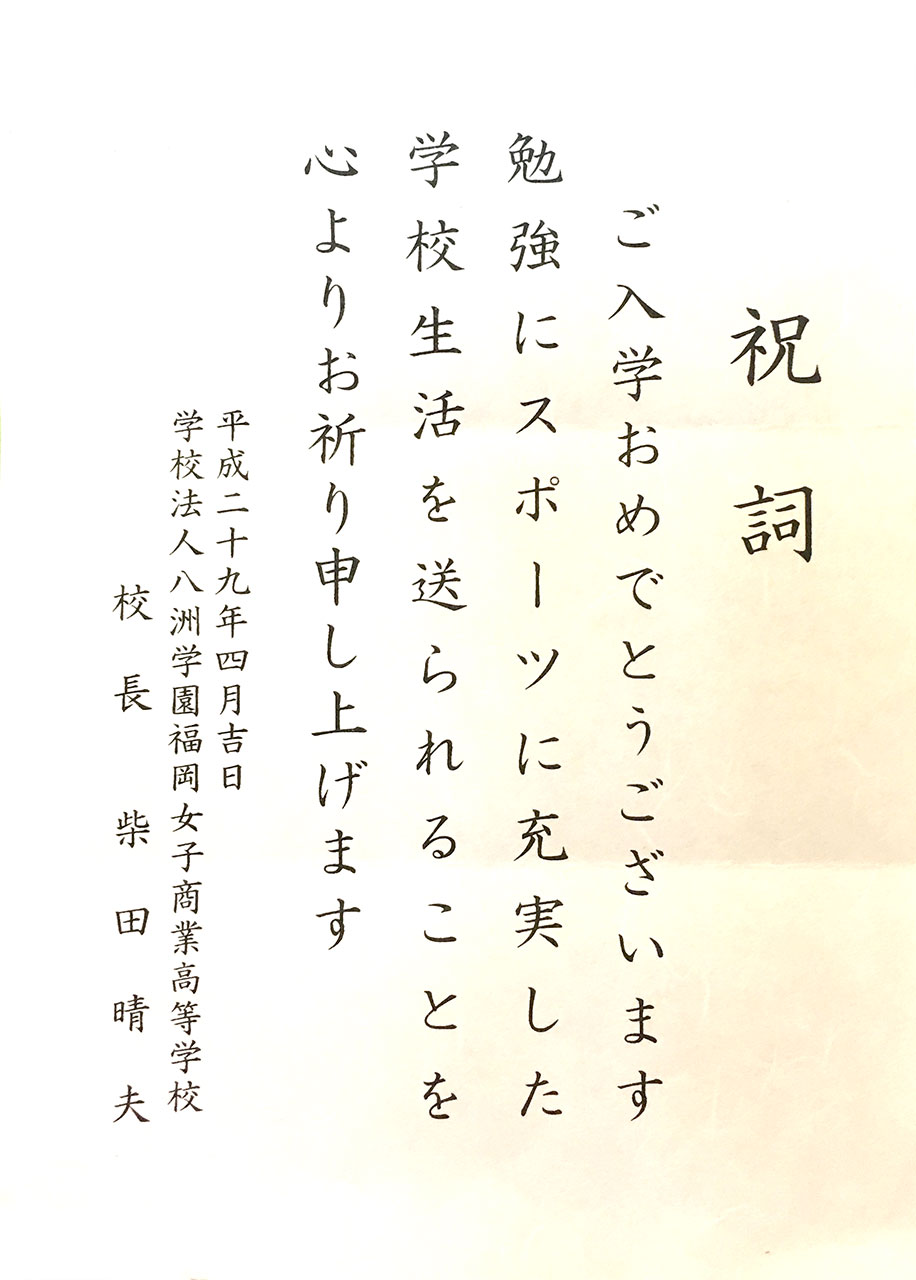 祝詞
ご入学おめでとうございます
勉強にスポーツに充実した
学校生活を送られることを
心よりお祈り申し上げます
平成二十九年四月吉日
学校法人八洲学園福岡女子商業高等学校
校長 柴田晴夫